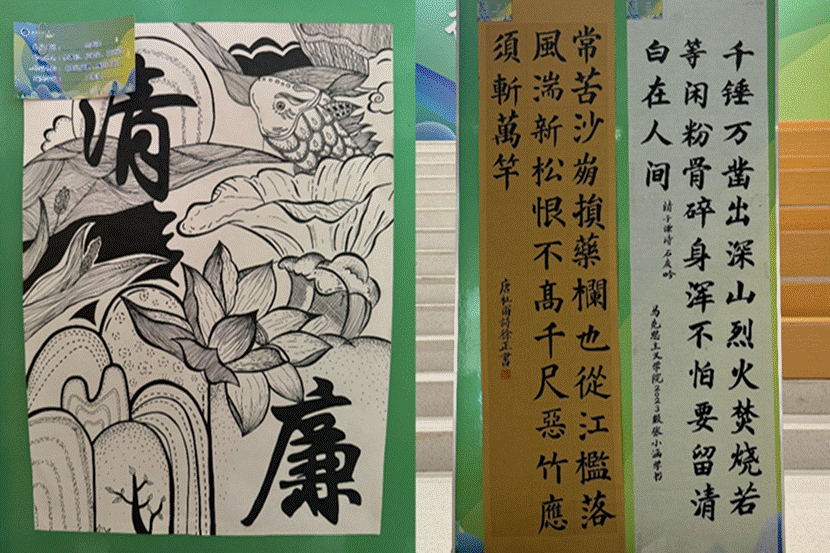 清
廉
常苦沙崩損藥欄也從江檻落
風湍新松恨不髙千尺惡竹應
須斬萬竿
唐杜甫詩徐正書
千锤万凿出深山烈火焚烧若
等闲粉骨碎身浑不怕要留清
白在人间
于谦诗石灰吟
马克思主义学院2023级张小涵书